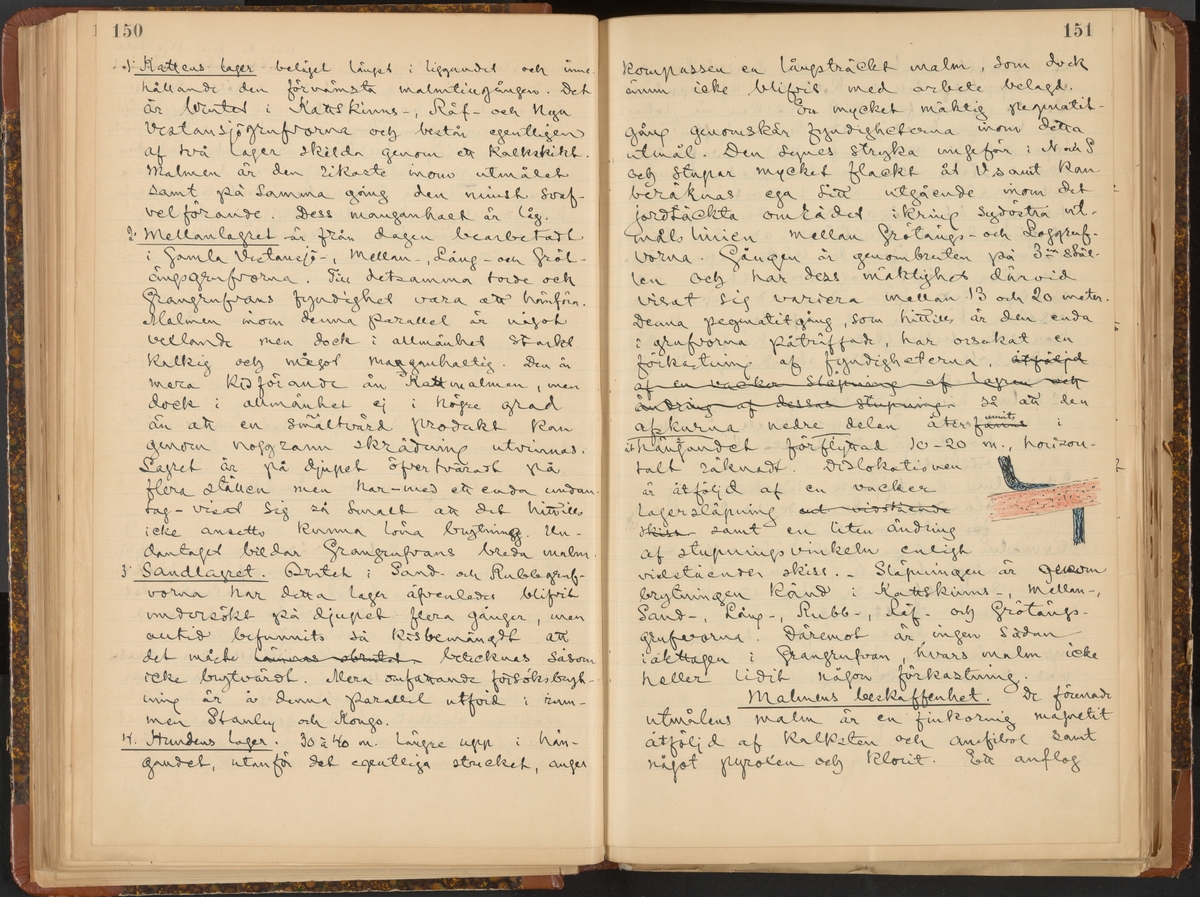 150
1. Kattens lager beläget längst i liggandet och inne-
hållande den förnämsta malmtillgången. Det
är brutet i Kattskinns-, Räf- och Nya
Vestansjögrufvorna och består egentligen
af två lager skilda genom ett kalkskikt.
Malmen är den rikaste inom utmålet
samt på samma gång den minst svaf-
velförande. Dess manganhalt är låg.
2. Mellanlagret är från dagen bearbetadt
i Gamla Vestansjö-, Mellan-, Lång- och Gröt-
ångsgrufvorna. Till detsamma torde och
Grangrufvans fyndighet vara att hänföra.
Malmen inom denna parallel är något
vellande men dock i allmänhet starkt
kalkig och något manganhaltig. Den är
mera kisförande än Kattmalmen, men
dock i allmänhet ej i högre grad
än att en smältvärd produkt kan
genom noggrann skrädning utvinnas.
Lagret är på djupet öfvertväradt på
flera ställen men har – med ett enda undan-
tag – visat sig så smalt att det hittills
icke ansetts kunna löna brytning. Un-
dantaget bildar Grangrufvans breda malm.
3. Sandlagret. Brutet i Sand- och Rubbegruf-
vorna har detta lager äfvenledes blifvit
undersökt på djupet flera gånger, men
alltid befunnits så kisbemängdt att
det måste lämnas obrutet betecknas såsom
icke brytvärdt. Mera omfattande försöksbryt-
ning är å denna parallel utförd i rum-
men Stanley och Kongo.
4. Hundens lager. 30 à 40 m. längre upp i hän-
gandet, utanför det egentliga strecket, anger
151
kompassen en långsträckt malm, som dock
ännu icke blifvit med arbete belagd.
En mycket mäktig pegmatit-
gång genomskär fyndigheterna inom detta
utmål. Den synes stryka ungefär i N och S
och stupar mycket flackt åt V samt kan
beräknas ega sitt utgående inom det
jordtäckta området ikring sydöstra ut-
målslinien mellan Grötångs- och Loggruf-
vorna. Gången är genombruten på 3
len och har dess mäktighet därvid
visat sig variera mellan 13 och 20 meter.
Denna pegmatitgång, som hittills är den enda
i grufvorna påträffade, har orsakat en
förkastning af fyndigheterna, åtföljd
af en vacker släpning af lagren och
ändring af dessas stupning så att den
afskurna nedre delen återfanns funnits i
åt hängandet förflyttad 10–20 m., horizon-
talt räknadt. Dislokationen
är åtföljd af en vacker
lagersläpning ent vidstående
skiss samt en liten ändring
af stupningsvinkeln enligt
vidstående skiss. – Släpningen är genom
brytningen känd i Kattskinns-, Mellan-,
Sand-, Lång-, Rubb-, Räf- och Grötångs-
grufvorna. Däremot är ingen sådan
iakttagen i Grangrufvan, hvars malm icke
heller lidit någon förkastning.
Malmens beskaffenhet. De förenade
utmålens malm är en finkornig magnetit
åtföljd af kalksten och amfibol samt
något pyroxen och klorit. Ett anflog